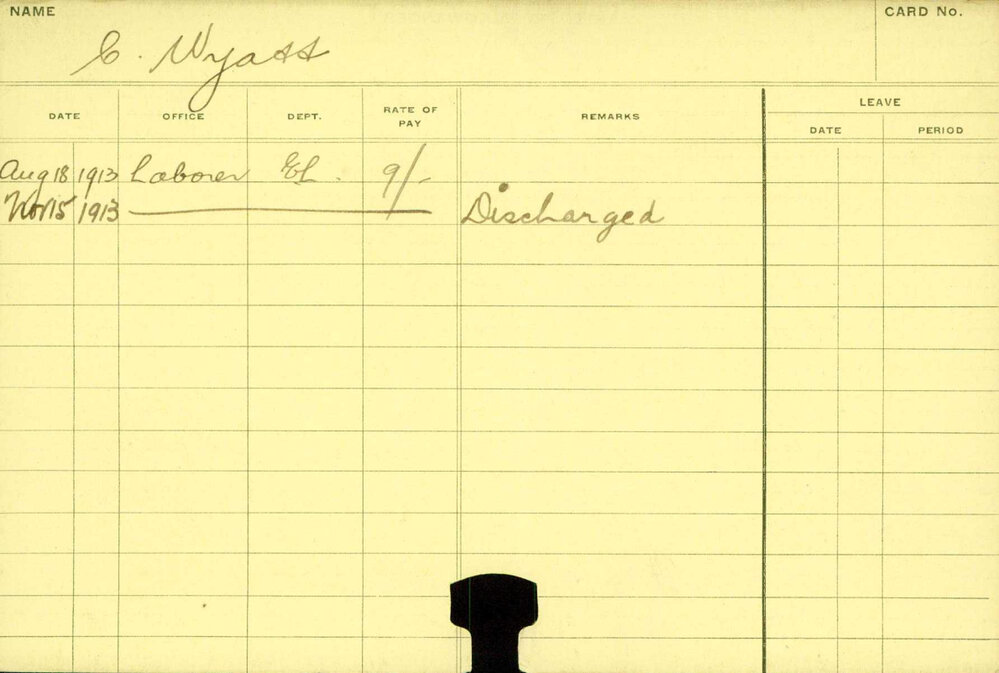 NAME
CARD No.
C. Wyatt
DATE OFFICE DEPT. RATE OF PAY REMARKS LEAVE
DATE PERIOD
Aug 18 1913 Laborer EL. 9/-
Nov 15 1913 Discharged